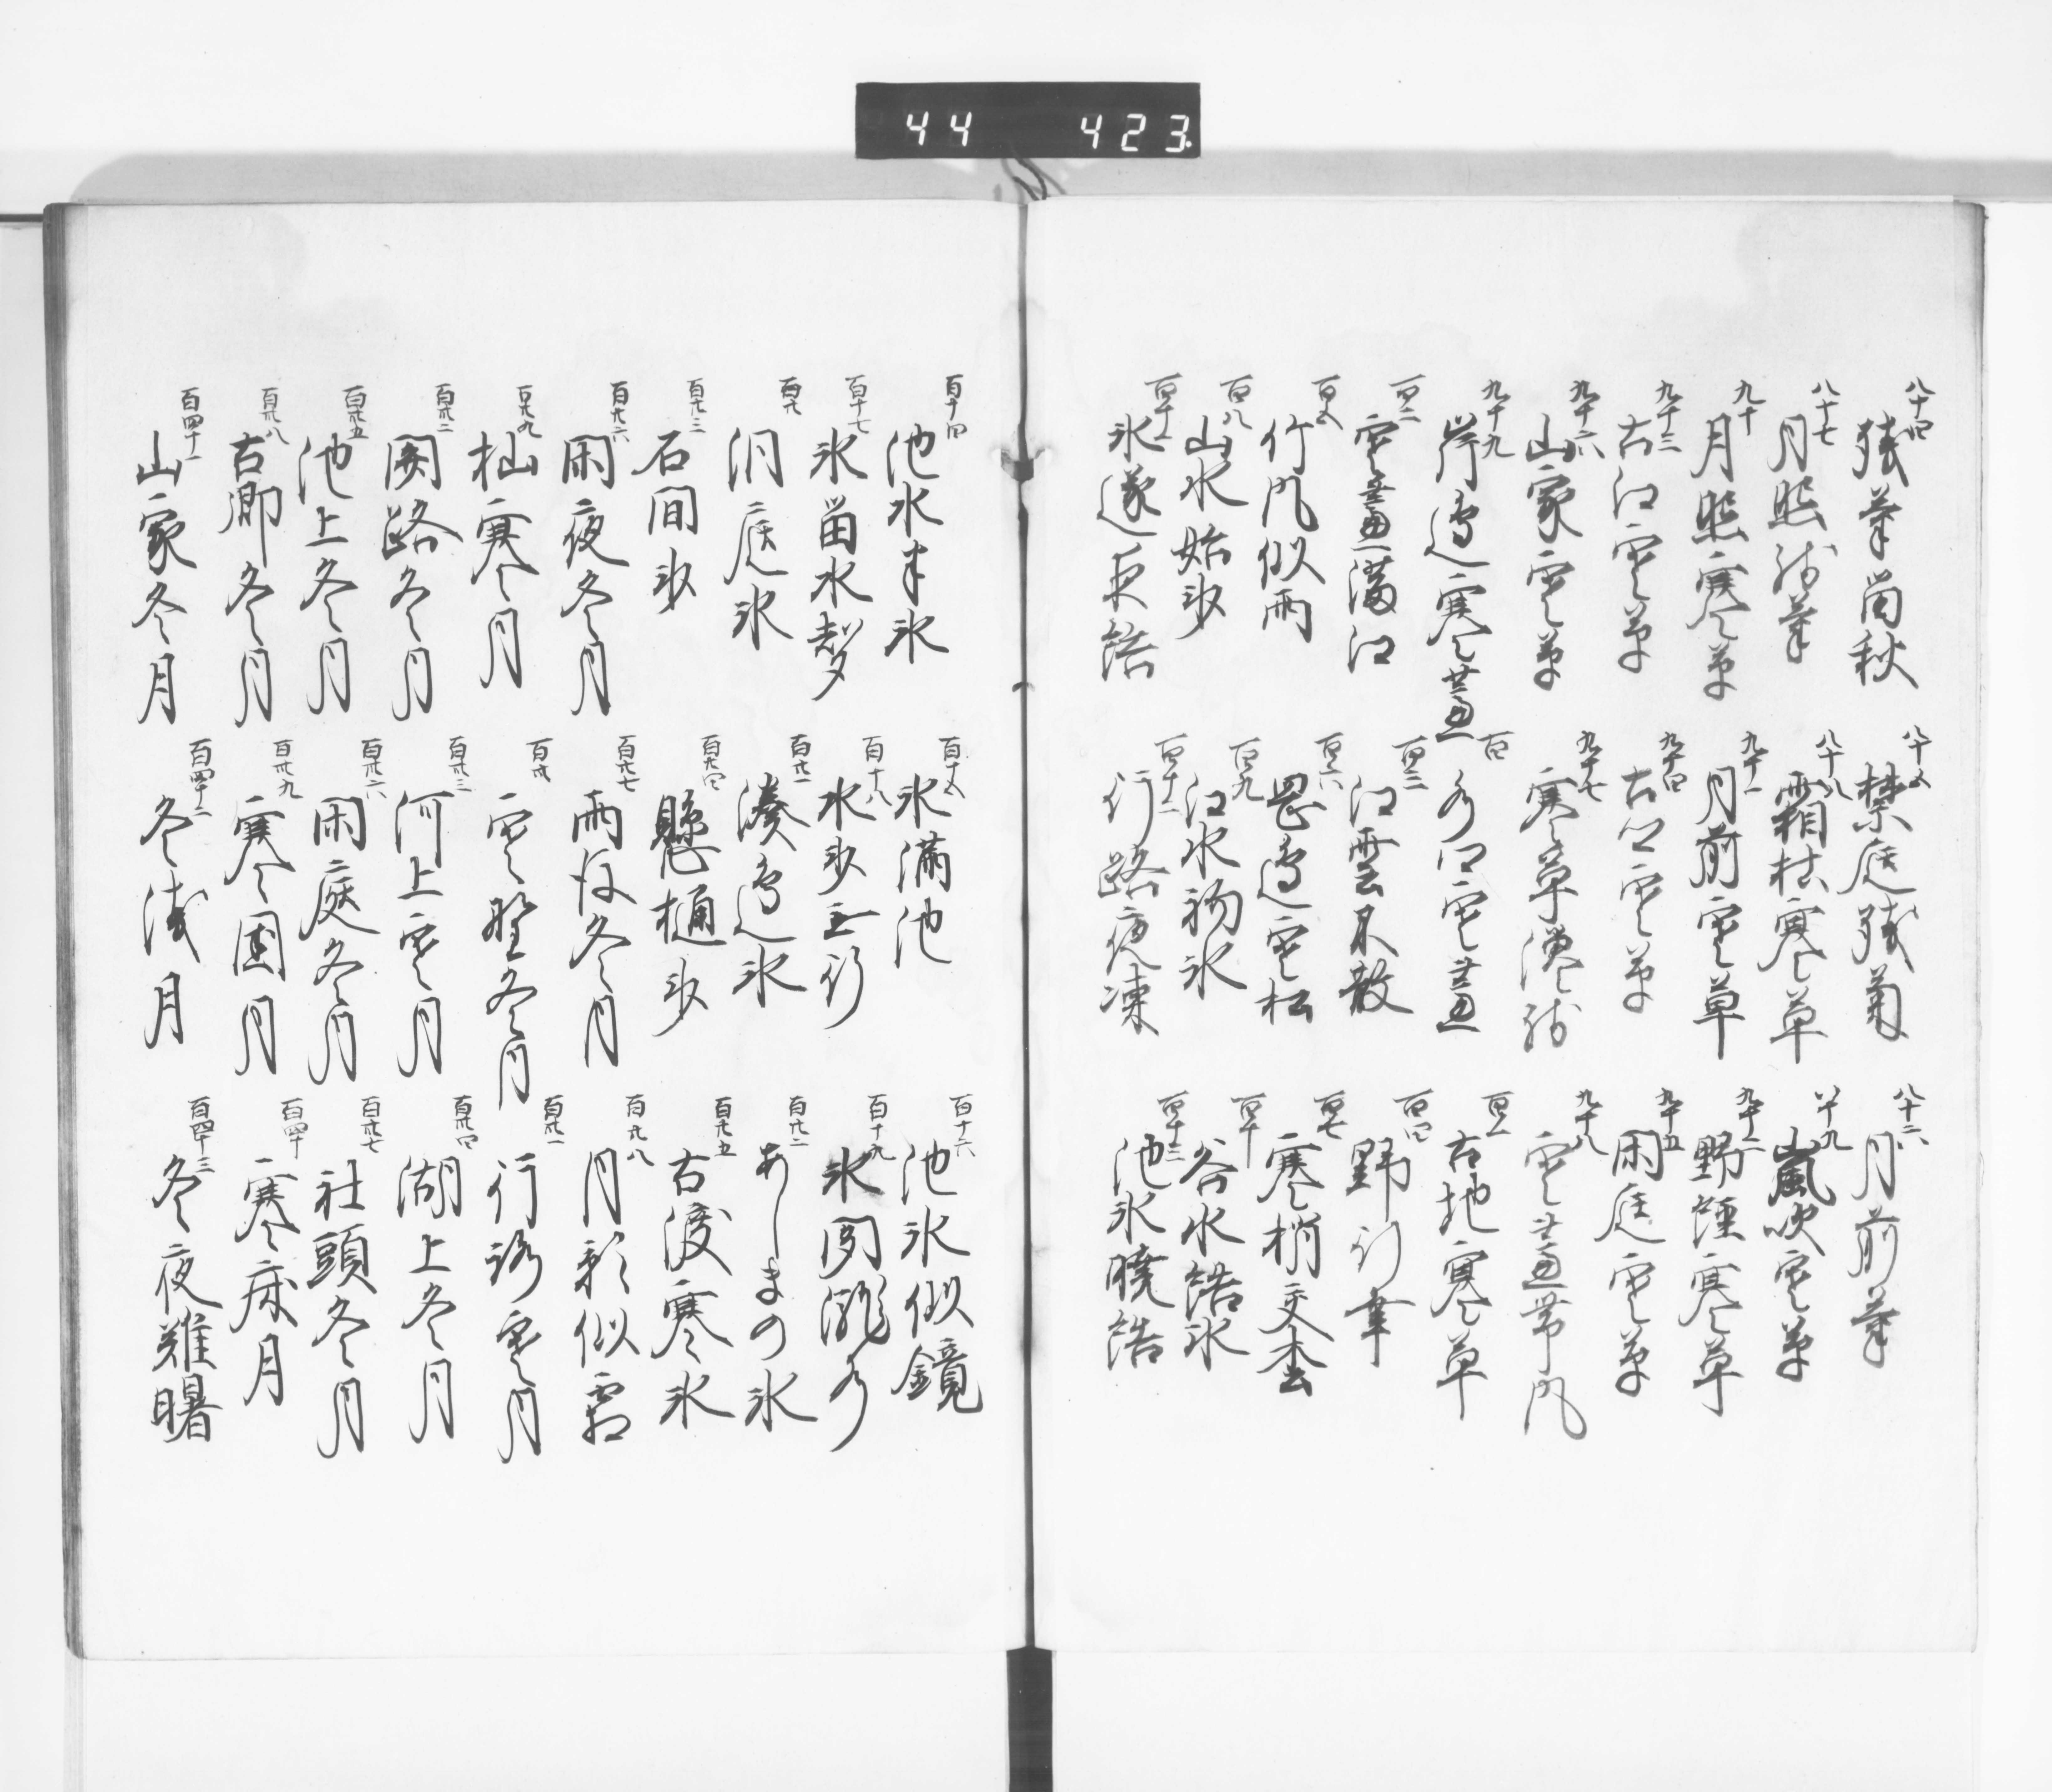 44 423.
八十四 残菊留秋
八十五 禁庭残菊
八十六 月前菊
八十七 月照残菊
八十八 霜枯寒草
八十九 嵐吹寒草
九十 月照寒草
九十一 月前寒草
九十二 野煙寒草
九十三 古江寒草
九十四 古江寒草
九十五 閑庭寒草
九十六 山家寒草
九十七 寒草纔残
九十八 寒蘆帯風
九十九 岸辺寒蘆
百 水郷寒蘆
百一 古地寒草
百二 寒蘆満江
百三 江雲不散
百四 野行幸
百五 竹風似雨
百六 岡辺寒松
百七 寒梢交松
百八 山水始氷
百九 江水初氷
百十 谷水結氷
百十一 氷逐夜結
百十二 行路夜凍
百十三 池氷暁結
百十四 池水半氷
百十五 氷満池
百十六 池氷似鏡
百十七 氷留水声
百十八 水氷無行
百十九 氷閉滝水
百廿 洞庭氷
百廿一 湊辺氷
百廿二 あしまの氷
百廿三 石間氷
百廿四 懸樋氷
百廿五 古渡寒氷
百廿六 閑夜冬月
百廿七 雨後冬月
百廿八 月影似霜
百廿九 杣寒月
百卅 寒野冬月
百卅一 行路寒月
百卅二 関路冬月
百卅三 河上寒月
百卅四 湖上冬月
百卅五 池上冬月
百卅六 閑庭冬月
百卅七 社頭冬月
百卅八 古郷冬月
百卅九 寒園月
百四十 寒床月
百四十一 山家冬月
百四十二 冬浅月
百四十三 冬夜難曙